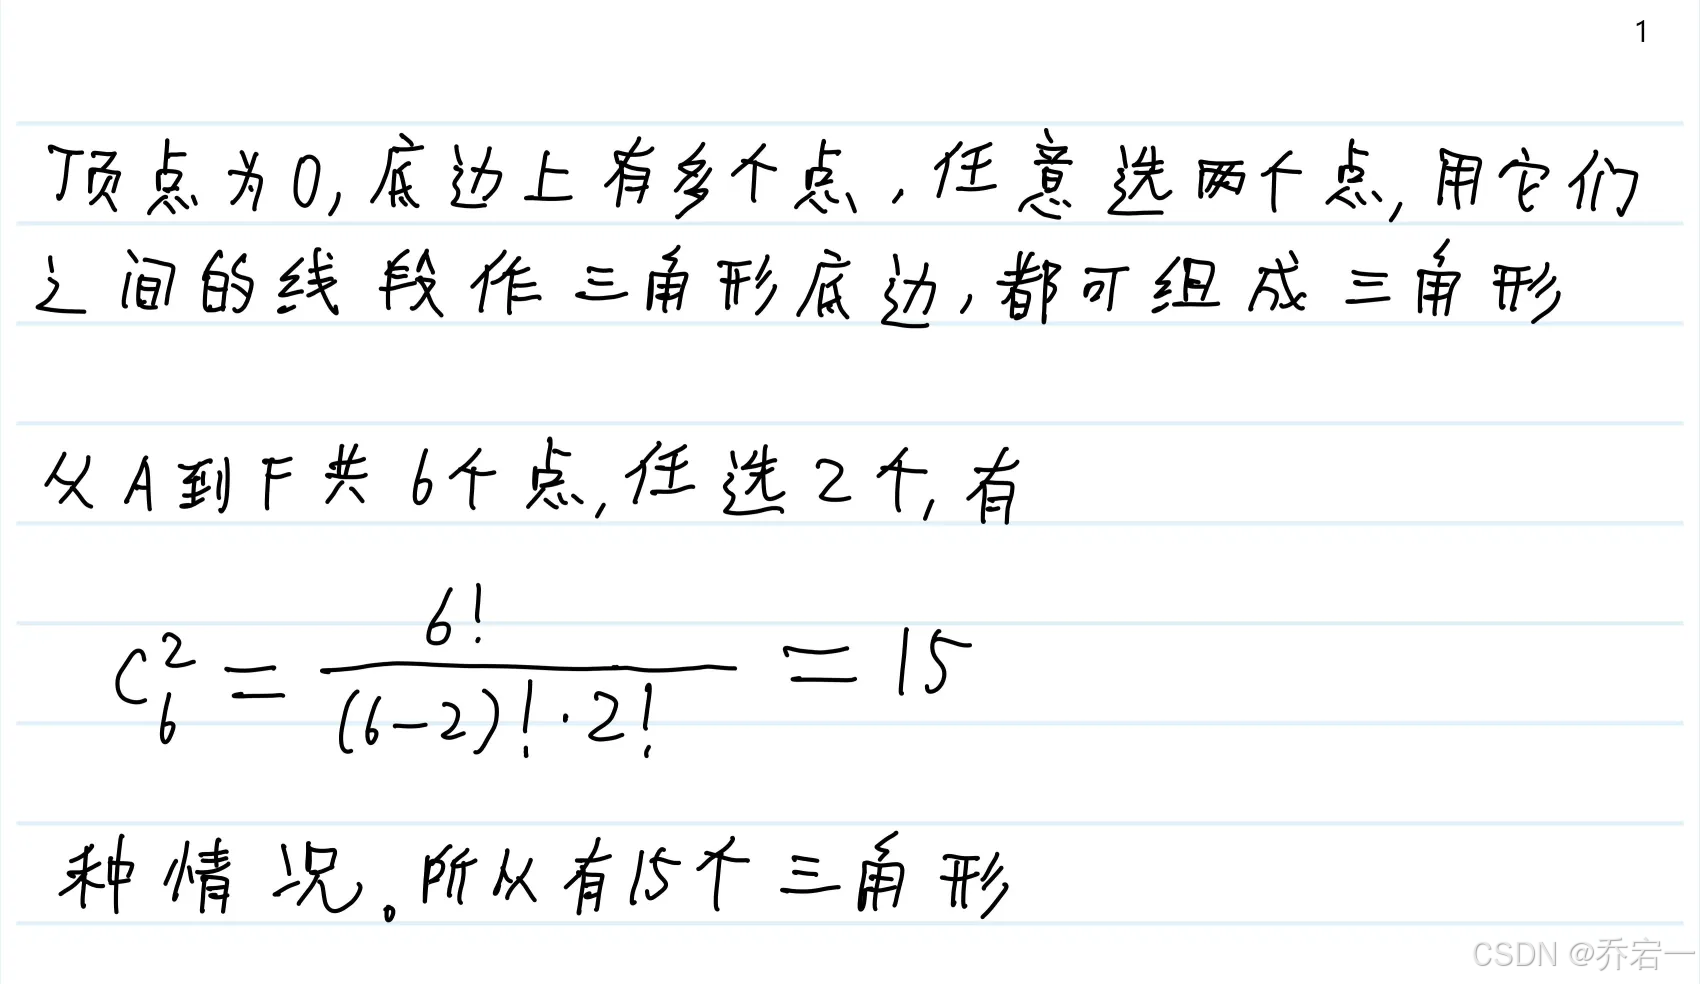 1
顶点为O,底边上有多个点,任意选两个点,用它们
之间的线段作三角形底边,都可组成三角形
从A到F共6个点,任选2个,有
C_6^2 = \frac{6!}{(6-2)!·2!} = 15
种情况。所以有15个三角形
CSDN @乔宕一